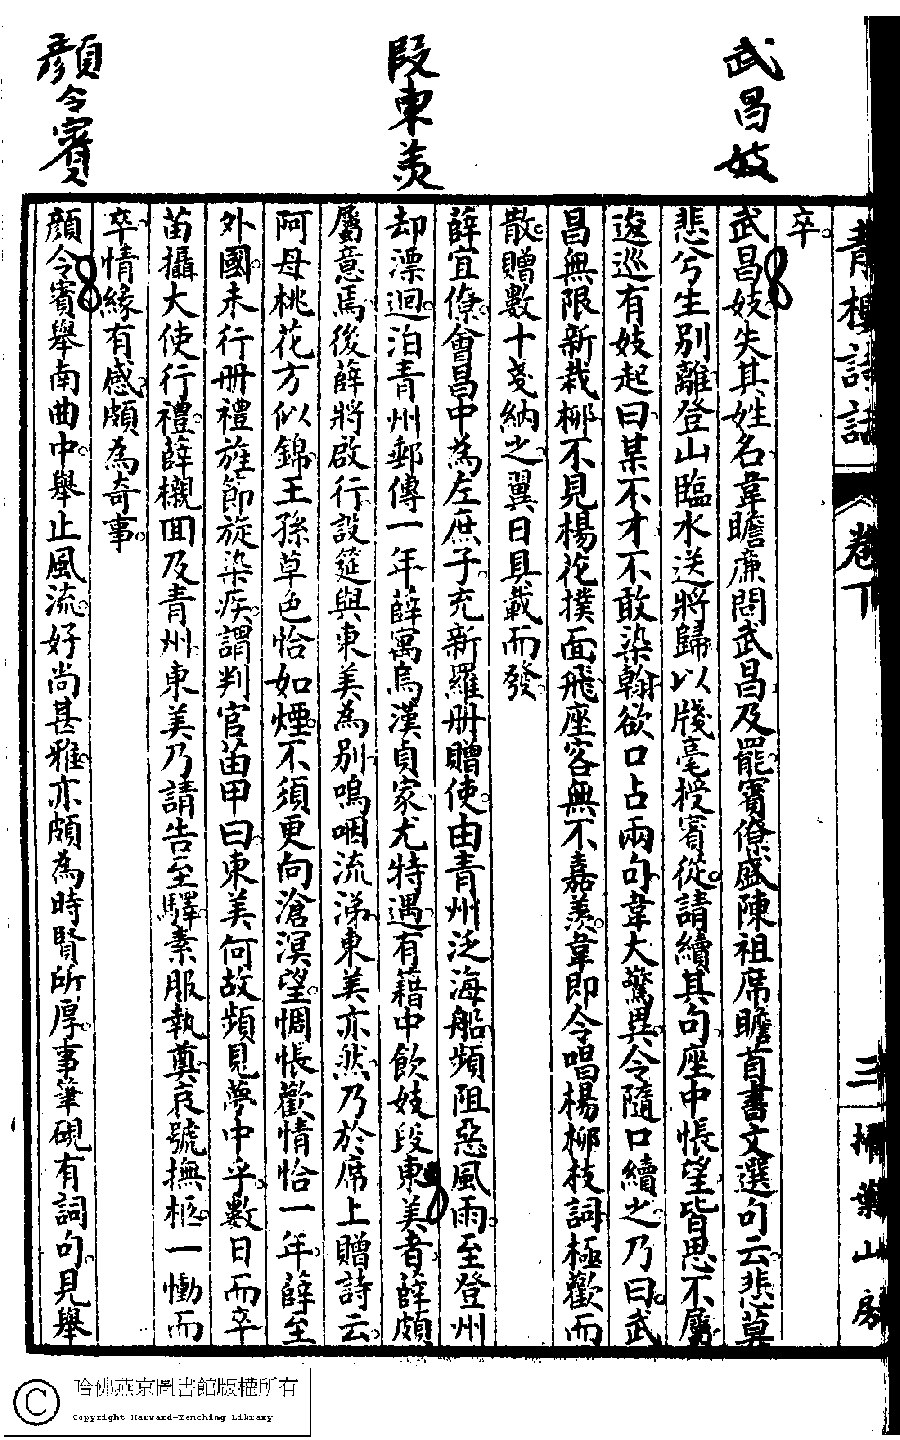 青樓詩話 卷下 三 掃葉山房
武昌妓
段東美
顏令賓
卒。
武昌妓失其姓名韋瞻廉問武昌及罷賓僚盛陳祖席瞻首書文選句云悲莫
悲兮生別離登山臨水送將歸以牋毫授賓從請續其句座中悵望皆思不屬
逡巡有妓起曰某不才不敢染翰欲口占兩句韋大驚異令隨口續之乃曰武
昌無限新栽柳不見楊花撲面飛座客無不嘉羨韋即令唱楊柳枝詞極歡而
散贈數十戔納之翼日具載而發
薛宜僚會昌中為左庶子充新羅冊贈使由青州泛海船頻阻惡風雨至登州
却漂迴泊青州郵傳一年薛寓烏漢貞家尤特遇有籍中飲妓段東美者薛頗
屬意焉後薛將啟行設筵與東美為別嗚咽流涕東美亦然乃於席上贈詩云
阿母桃花方似錦王孫草色恰如煙不須更向滄溟望惆悵歡情恰一年薛至
外國未行冊禮旌節旋染疾謂判官苗甲曰東美何故頻見夢中乎數日而卒
苗攝大使行禮薛櫬回及青州東美乃請告至驛素服執奠哀號撫柩一慟而
卒情緣有感頗為奇事
顏令賓舉南曲中舉止風流好尚甚雅亦頗為時賢所厚事筆硯有詞句見舉
哈佛燕京圖書館版權所有
Copyright Harvard-Yenching Library